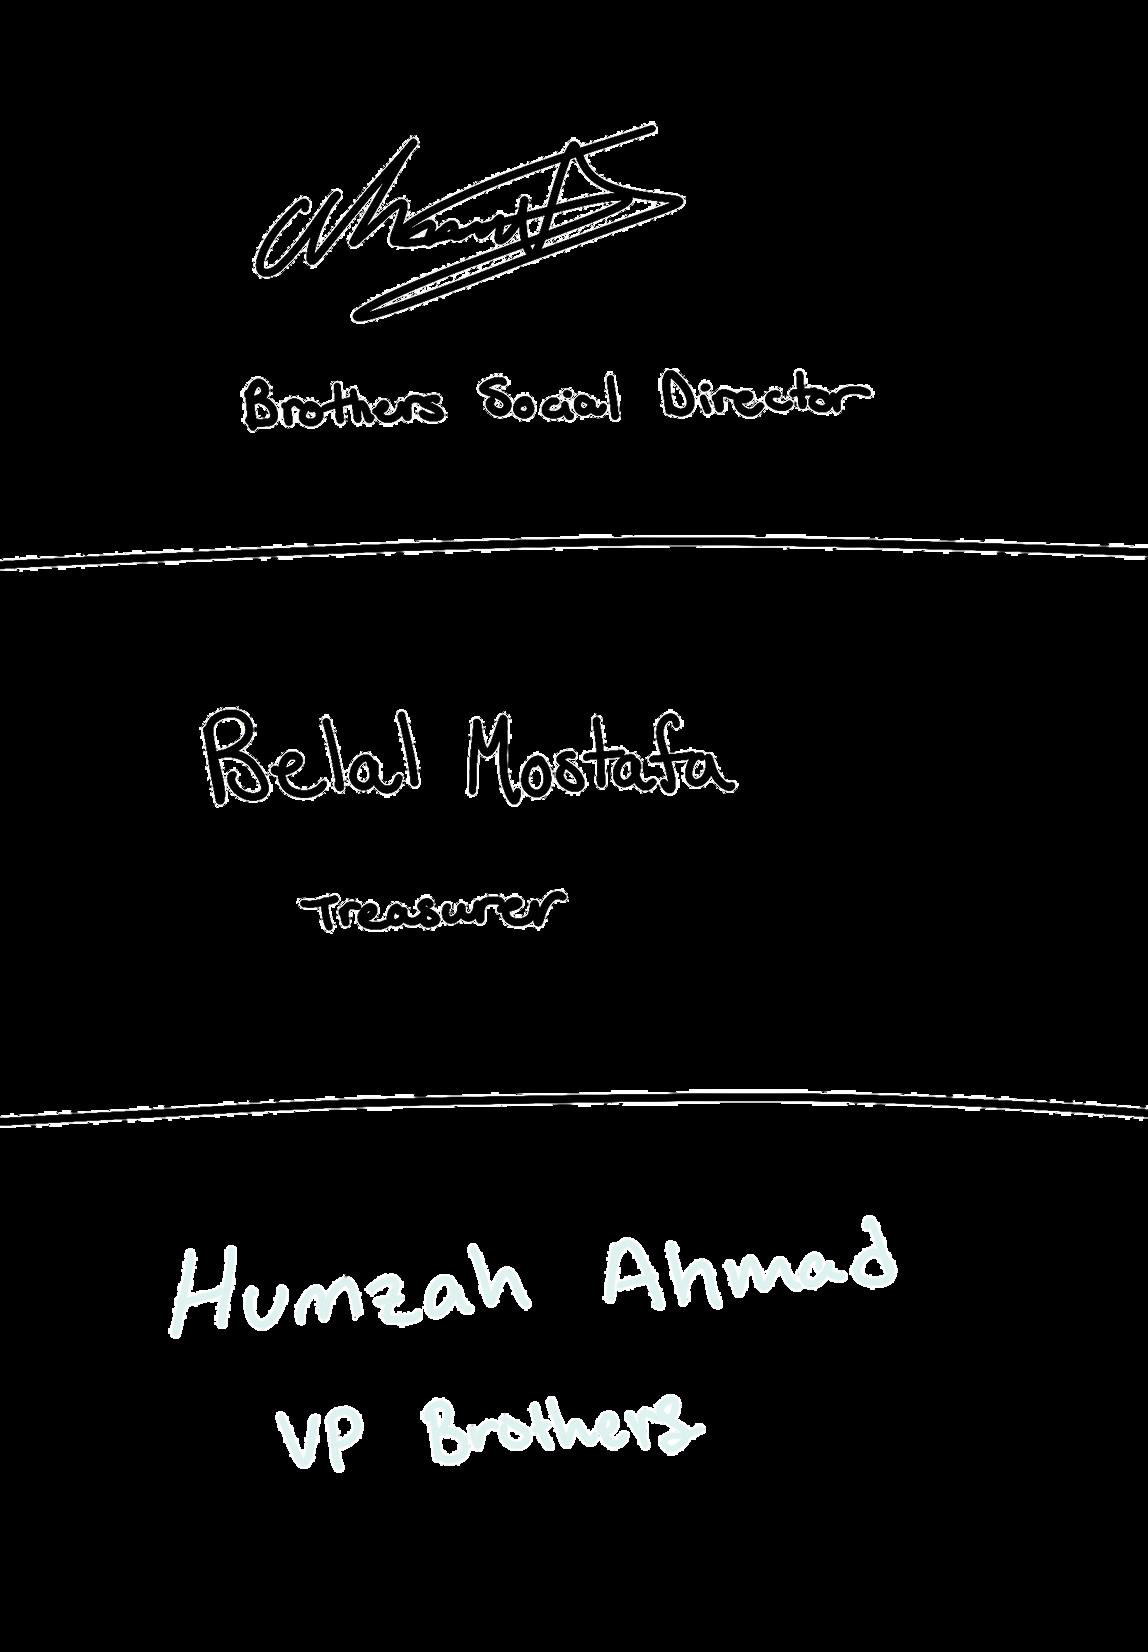 Brothers Social Director
Belal Mostafa
Treasurer
Humzah Ahmad
VP Brothers